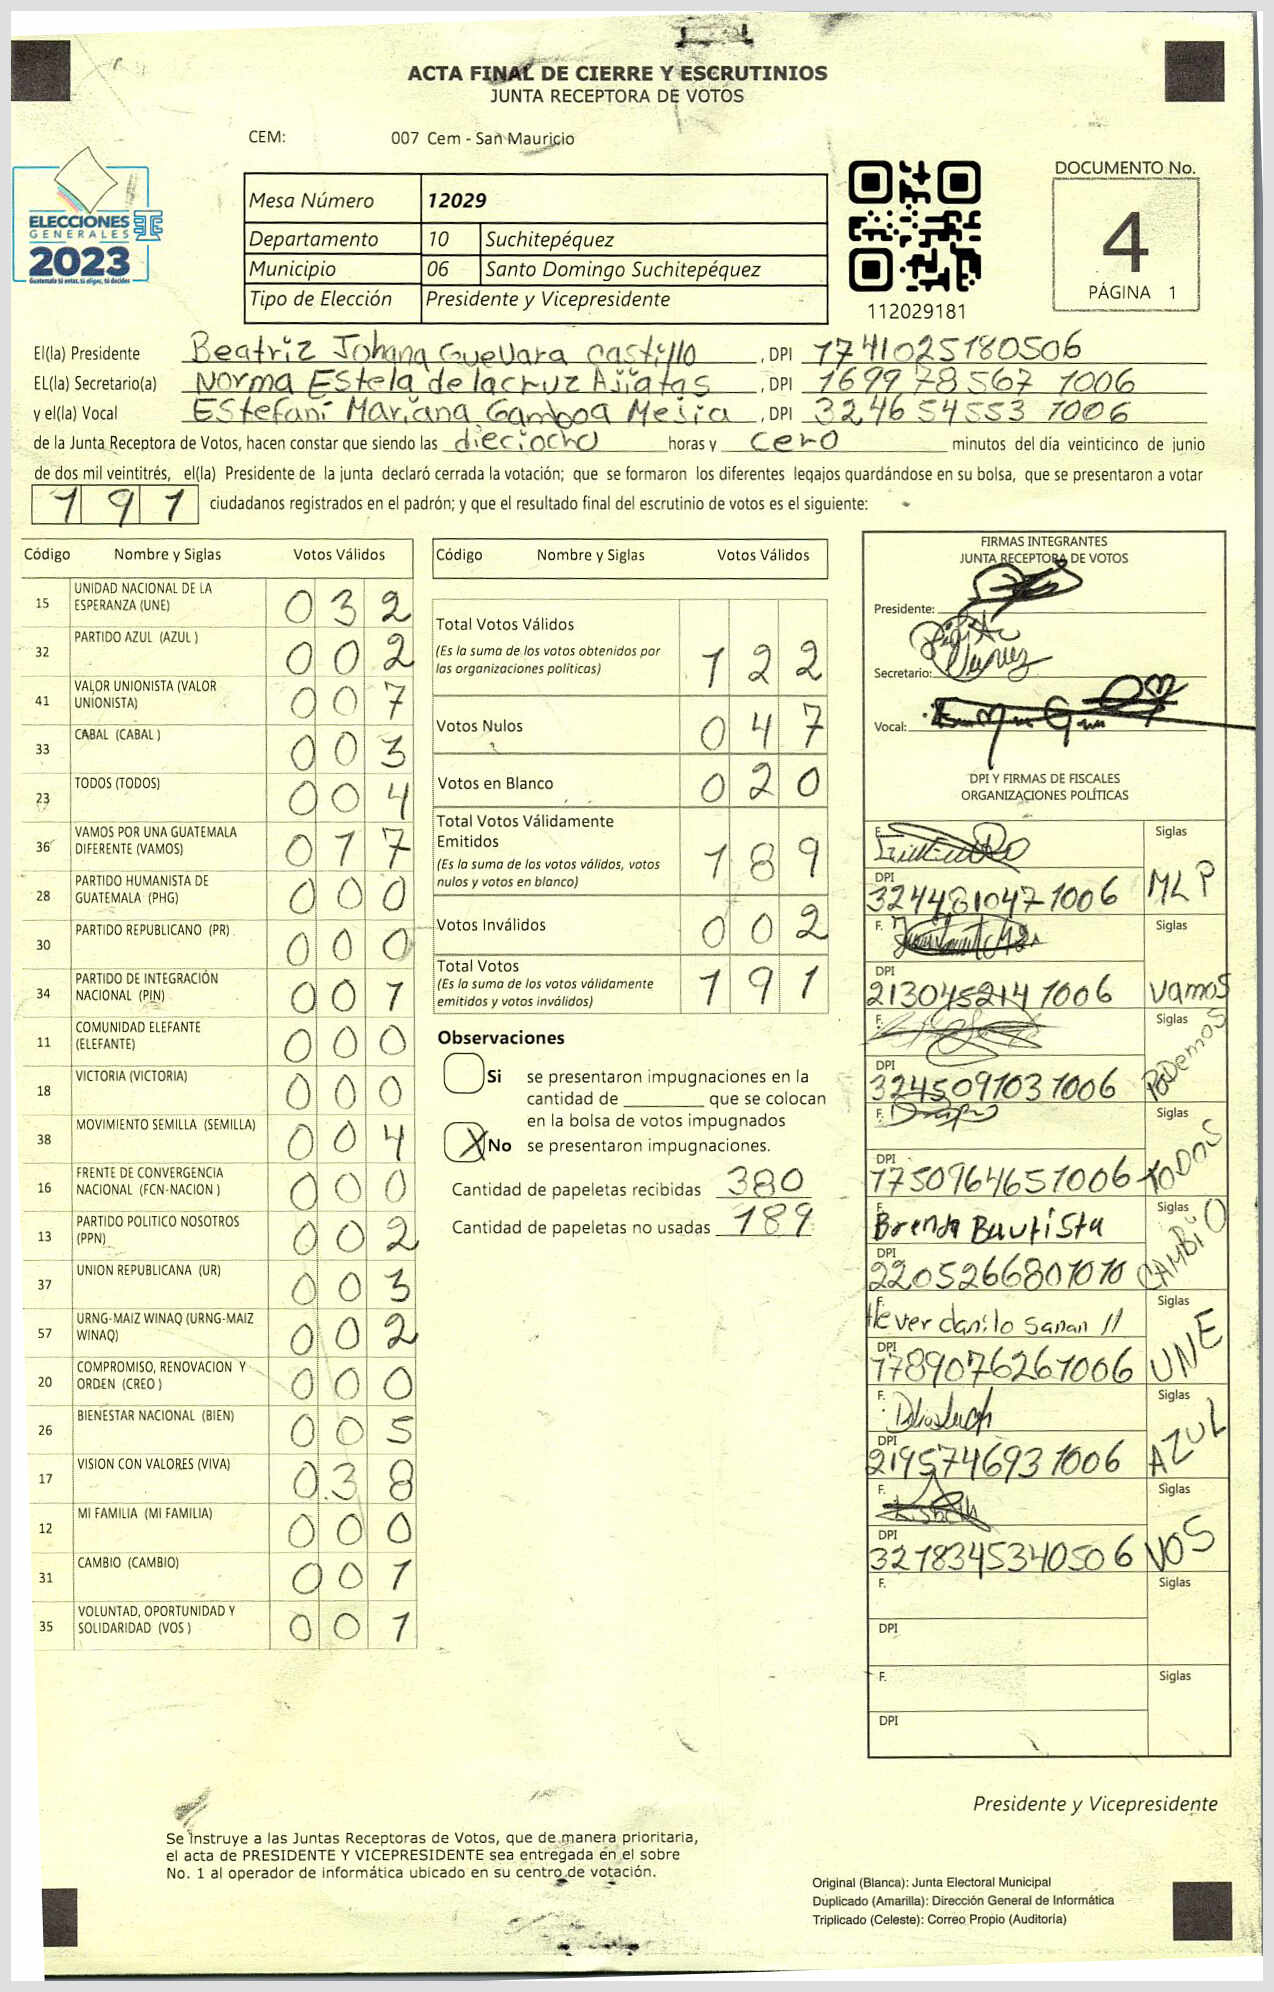 ACTA FINAL DE CIERRE Y ESCRUTINIOS
JUNTA RECEPTORA DE VOTOS
CEM: 007 Cem - San Mauricio
ELECCIONES
GENERALES
2023
Guatemala tú estas, tú eliges, tú decides
Mesa Número 12029
Departamento 10 Suchitepéquez
Municipio 06 Santo Domingo Suchitepéquez
Tipo de Elección Presidente y Vicepresidente
112029181
DOCUMENTO No.
4
PÁGINA 1
El(la) Presidente Beatriz Johana Guevara Castillo, DPI 1741025180506
EL(la) Secretario(a) Norma Estela de lacruz Ajiatas, DPI 1699 78567 1006
y el(la) Vocal Estefani Mariana Gamboa Mejia, DPI 324654553 1006
de la Junta Receptora de Votos, hacen constar que siendo las dieciocho horas y cero minutos del día veinticinco de junio
de dos mil veintitrés, el(la) Presidente de la junta declaró cerrada la votación; que se formaron los diferentes legajos guardándose en su bolsa, que se presentaron a votar
191 ciudadanos registrados en el padrón; y que el resultado final del escrutinio de votos es el siguiente:
Código Nombre y Siglas Votos Válidos
15 UNIDAD NACIONAL DE LA ESPERANZA (UNE) 032
32 PARTIDO AZUL (AZUL ) 002
41 VALOR UNIONISTA (VALOR UNIONISTA) 007
33 CABAL (CABAL ) 003
23 TODOS (TODOS) 004
36 VAMOS POR UNA GUATEMALA DIFERENTE (VAMOS) 017
28 PARTIDO HUMANISTA DE GUATEMALA (PHG) 000
30 PARTIDO REPUBLICANO (PR) 000
34 PARTIDO DE INTEGRACIÓN NACIONAL (PIN) 001
11 COMUNIDAD ELEFANTE (ELEFANTE) 000
18 VICTORIA (VICTORIA) 000
38 MOVIMIENTO SEMILLA (SEMILLA) 004
16 FRENTE DE CONVERGENCIA NACIONAL (FCN-NACION ) 000
13 PARTIDO POLITICO NOSOTROS (PPN) 002
37 UNION REPUBLICANA (UR) 003
57 URNG-MAIZ WINAQ (URNG-MAIZ WINAQ) 002
20 COMPROMISO, RENOVACION Y ORDEN (CREO ) 000
26 BIENESTAR NACIONAL (BIEN) 005
17 VISION CON VALORES (VIVA) 038
12 MI FAMILIA (MI FAMILIA) 000
31 CAMBIO (CAMBIO) 001
35 VOLUNTAD, OPORTUNIDAD Y SOLIDARIDAD (VOS ) 001
Código Nombre y Siglas Votos Válidos
Total Votos Válidos
(Es la suma de los votos obtenidos por
las organizaciones políticas) 122
Votos Nulos 047
Votos en Blanco 020
Total Votos Válidamente
Emitidos
(Es la suma de los votos válidos, votos
nulos y votos en blanco) 189
Votos Inválidos 002
Total Votos
(Es la suma de los votos válidamente
emitidos y votos inválidos) 191
Observaciones
Si se presentaron impugnaciones en la
cantidad de ________ que se colocan
en la bolsa de votos impugnados
X No se presentaron impugnaciones.
Cantidad de papeletas recibidas 380
Cantidad de papeletas no usadas 189
FIRMAS INTEGRANTES
JUNTA RECEPTORA DE VOTOS
Presidente:
Secretario:
Vocal:
DPI Y FIRMAS DE FISCALES
ORGANIZACIONES POLÍTICAS
F. Siglas
DPI
324481047 1006 MLP
F. Siglas
DPI
213045214 1006 Vamos
F. Siglas
DPI
324509103 1006 Podemos
F. Siglas
DPI
1750964651006 TODOS
F. Siglas
Brenda Bautista
DPI
2205266801010 CAMBIO
F. Siglas
Hever danilo
DPI
1789076261006 UNE
F. Siglas
DPI
219574693 1006 AZUL
F. Siglas
DPI
3218345340506 VOS
F. Siglas
DPI
F. Siglas
DPI
Presidente y Vicepresidente
Se instruye a las Juntas Receptoras de Votos, que de manera prioritaria,
el acta de PRESIDENTE Y VICEPRESIDENTE sea entregada en el sobre
No. 1 al operador de informática ubicado en su centro de votación.
Original (Blanca): Junta Electoral Municipal
Duplicado (Amarilla): Dirección General de Informática
Triplicado (Celeste): Correo Propio (Auditoría)